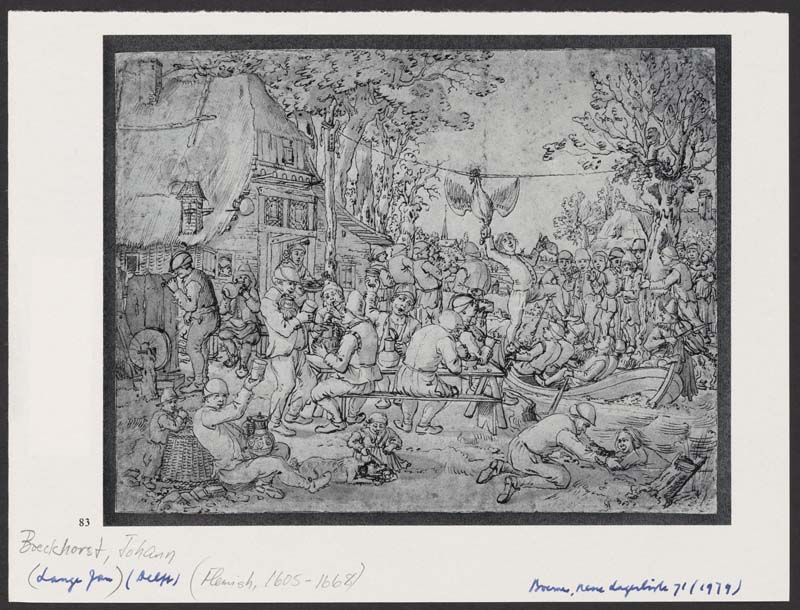 83
Boeckhorst, Johann
(Lange Jan) (Delft) (Flemish, 1605-1668)
Boerner, neue Lagerliste 71 (1979)